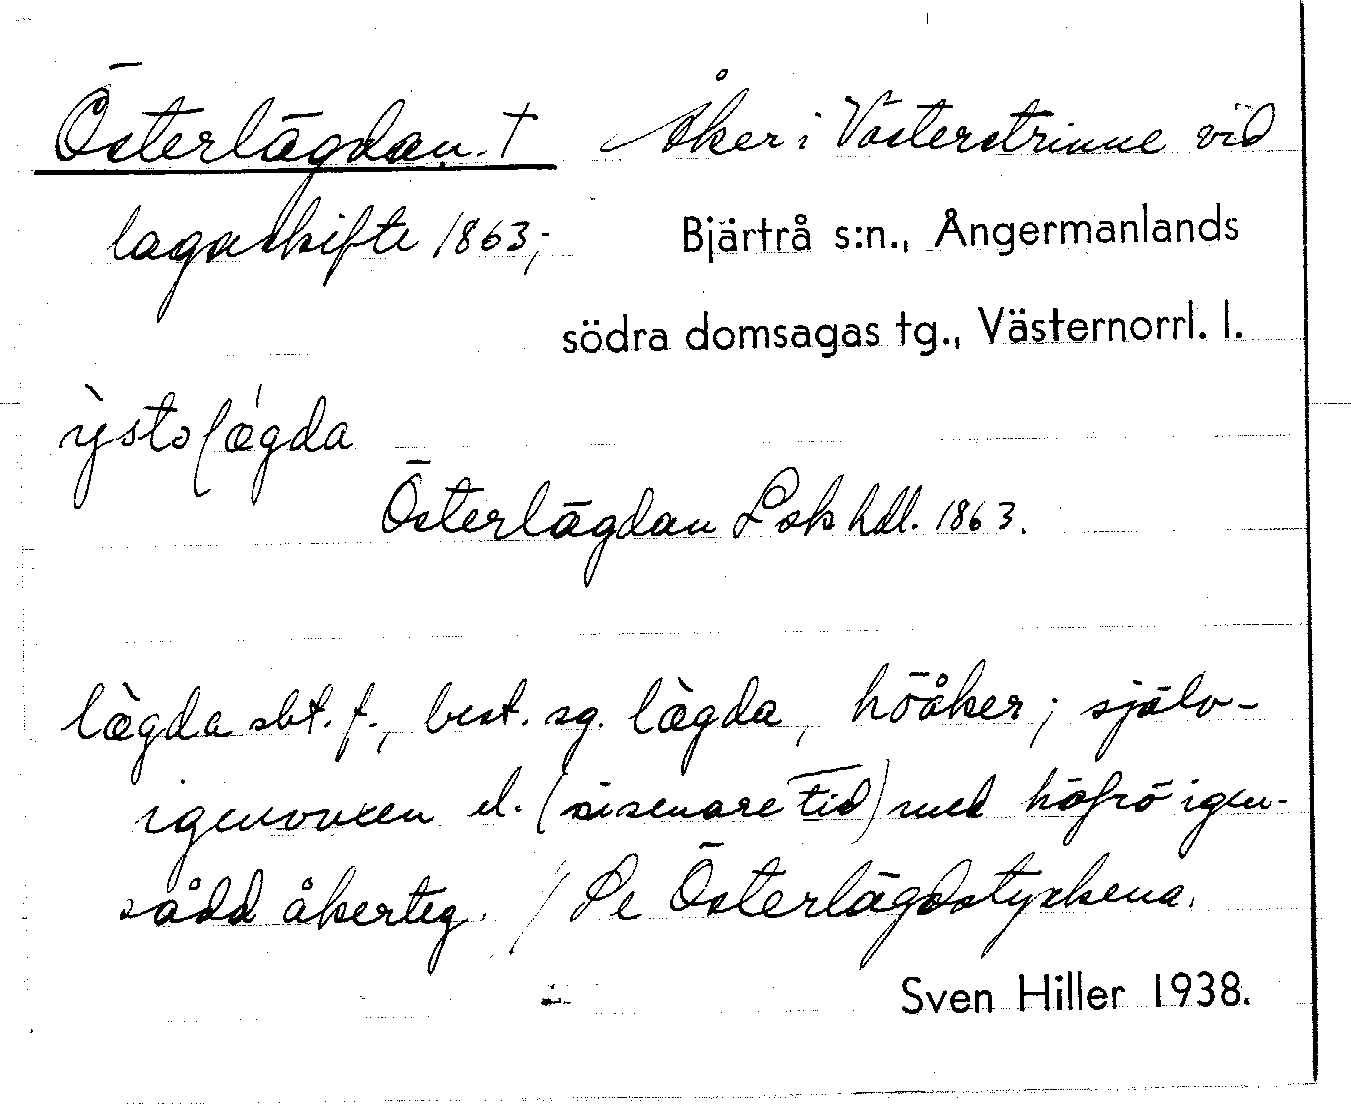 Österlägdan. † Åker i Västerstrinne vid
lagaskifte 1863;
Bjärtrå s:n., Ångermanlands
södra domsagas tg., Västernorrl. l.
Österlägdan Lsk hdl. 1863.
lægda sbt. f., best. sg. lægda, höåker; själv-
igenvuxen el. (i senare tid) med höfrö igen-
sådd åkerteg. // Se Österlägdstyckena.
Sven Hiller 1938.